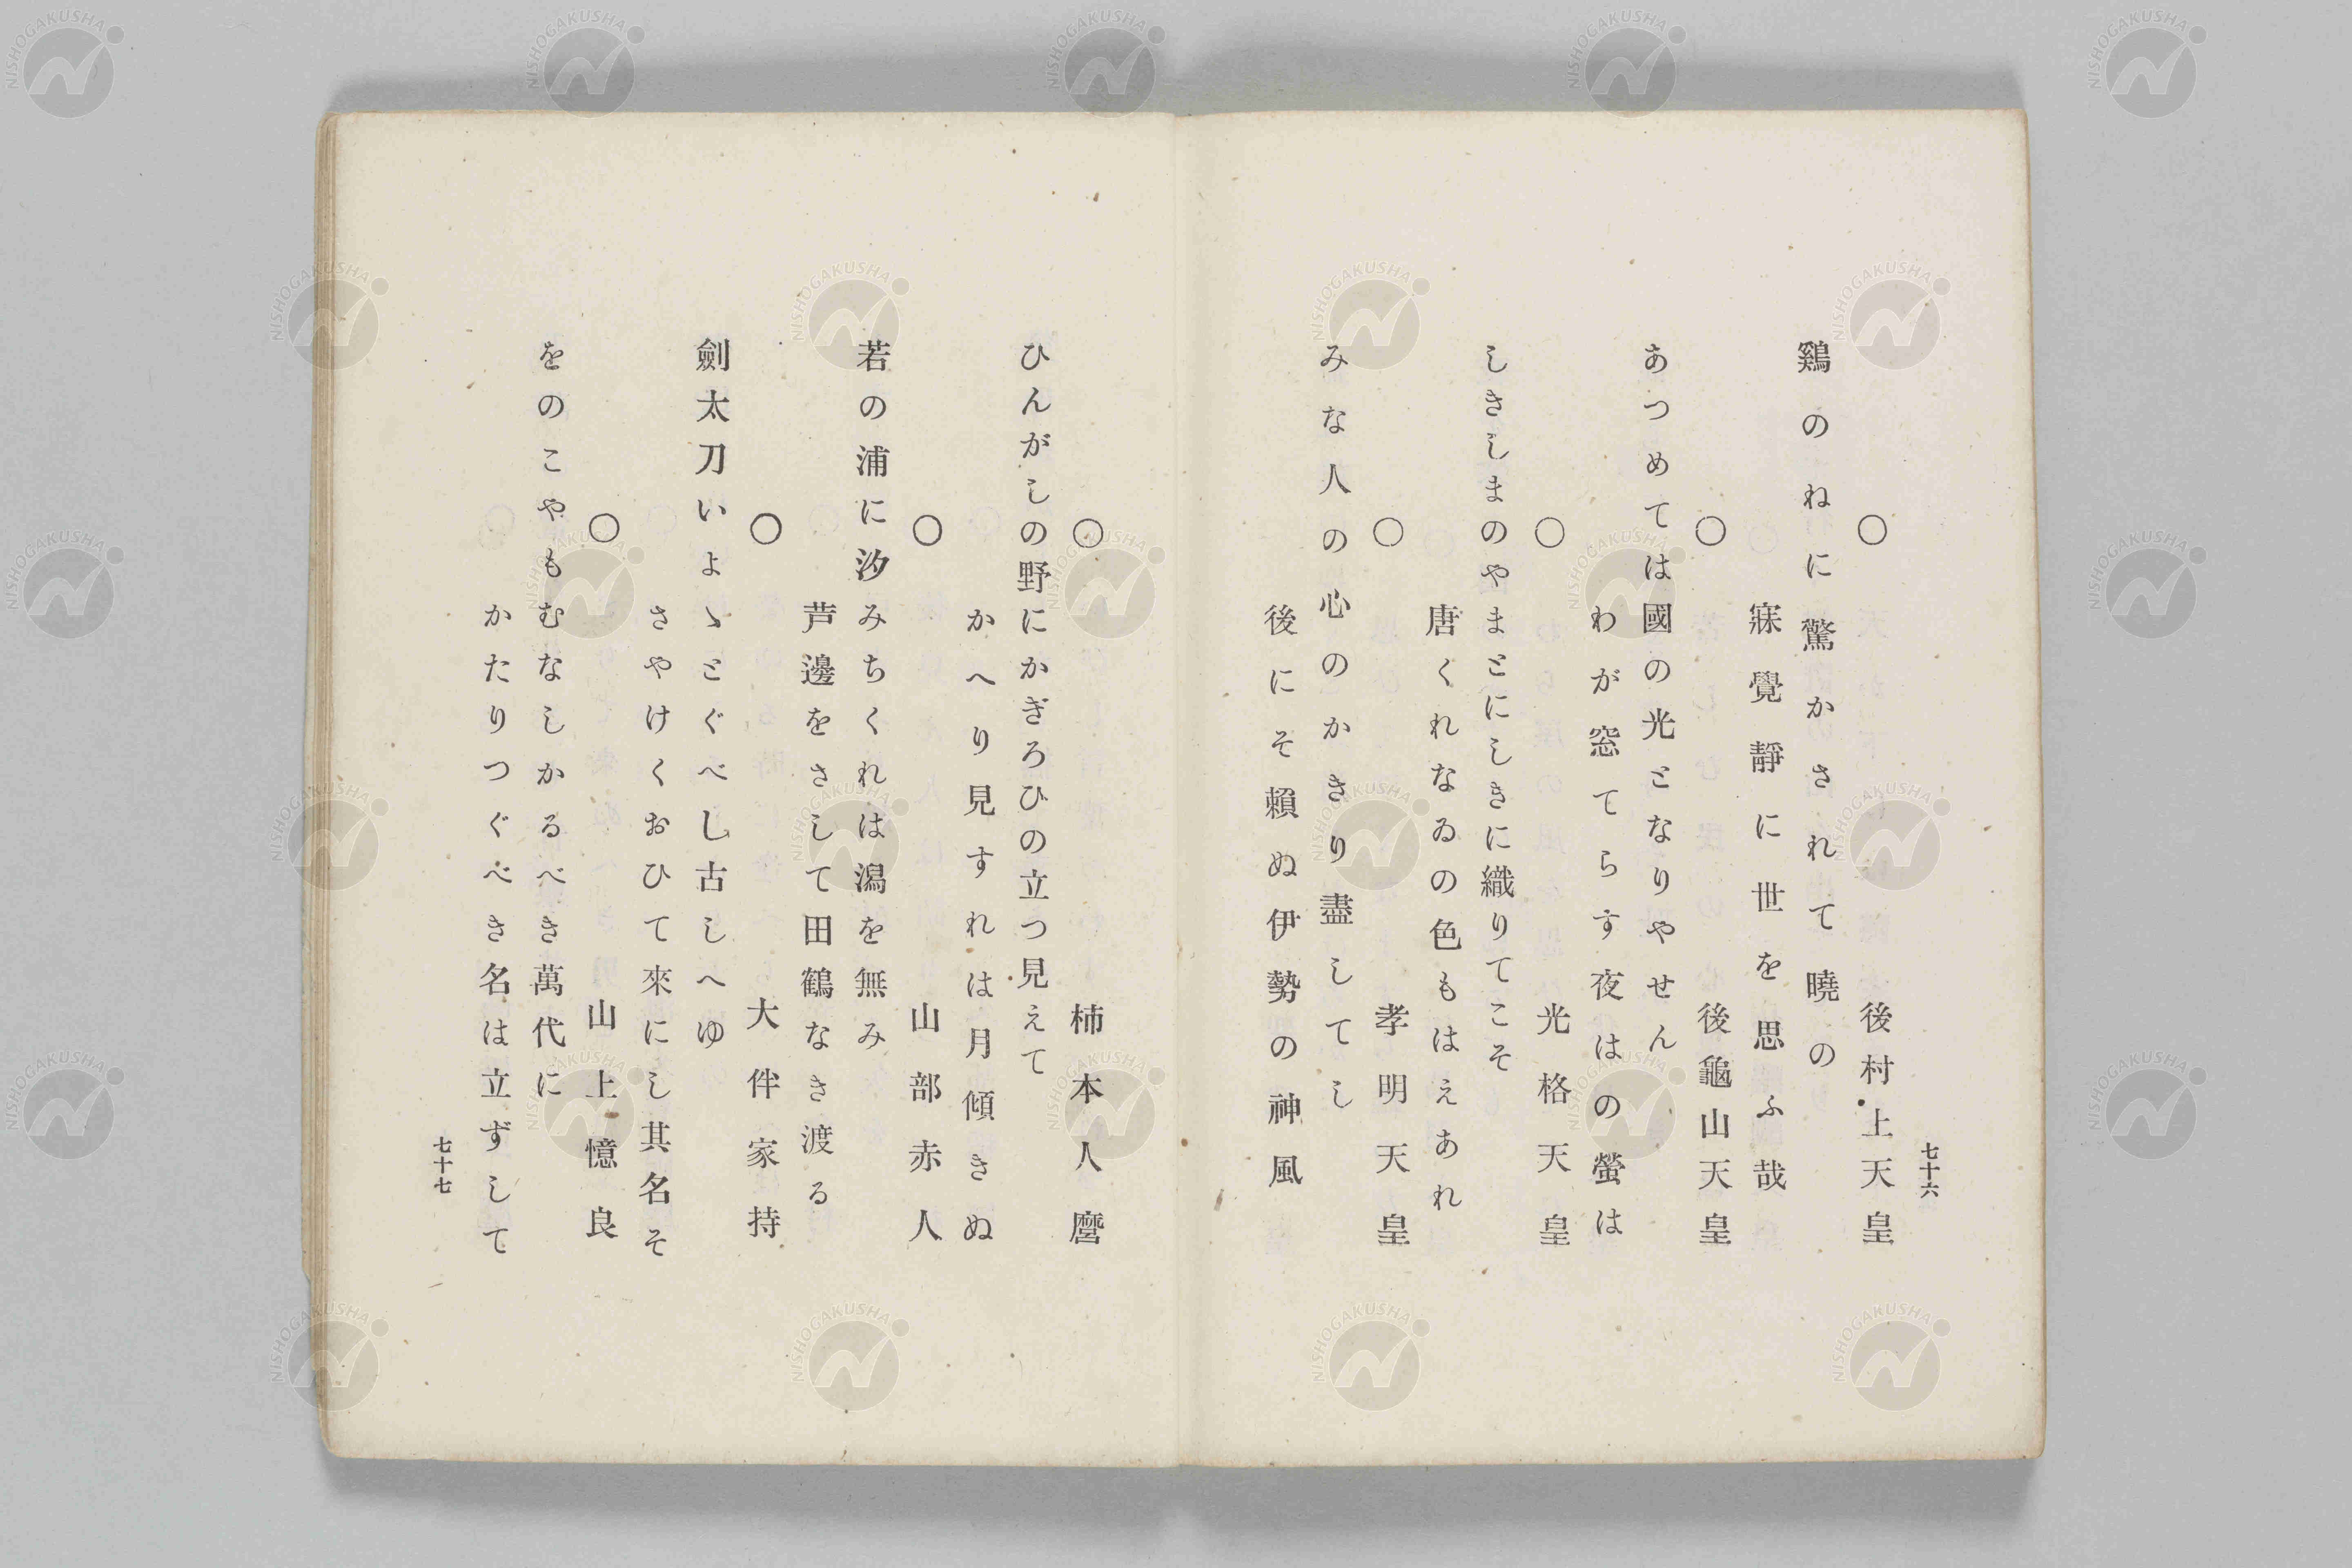 七十六
○ 後村上天皇
鷄のねに驚かされて曉の
寐覺靜に世を思ふ哉
○ 後龜山天皇
あつめては國の光となりやせん
わが窓てらす夜はの螢は
○ 光格天皇
しきしまのやまとにしきに織りてこそ
唐くれなゐの色もはえあれ
○ 孝明天皇
みな人の心のかきり盡してし
後にそ賴ぬ伊勢の神風
○ 柿本人麿
ひんがしの野にかぎろひの立つ見えて
かへり見すれは月傾きぬ
○ 山部赤人
若の浦に汐みちくれは潟を無み
芦邊をさして田鶴なき渡る
○ 大伴家持
劍太刀いよゝとぐべし古しへゆ
さやけくおひて來にし其名そ
○ 山上憶良
をのこやもむなしかるべき萬代に
かたりつぐべき名は立ずして
七十七
NISHOGAKUSHA